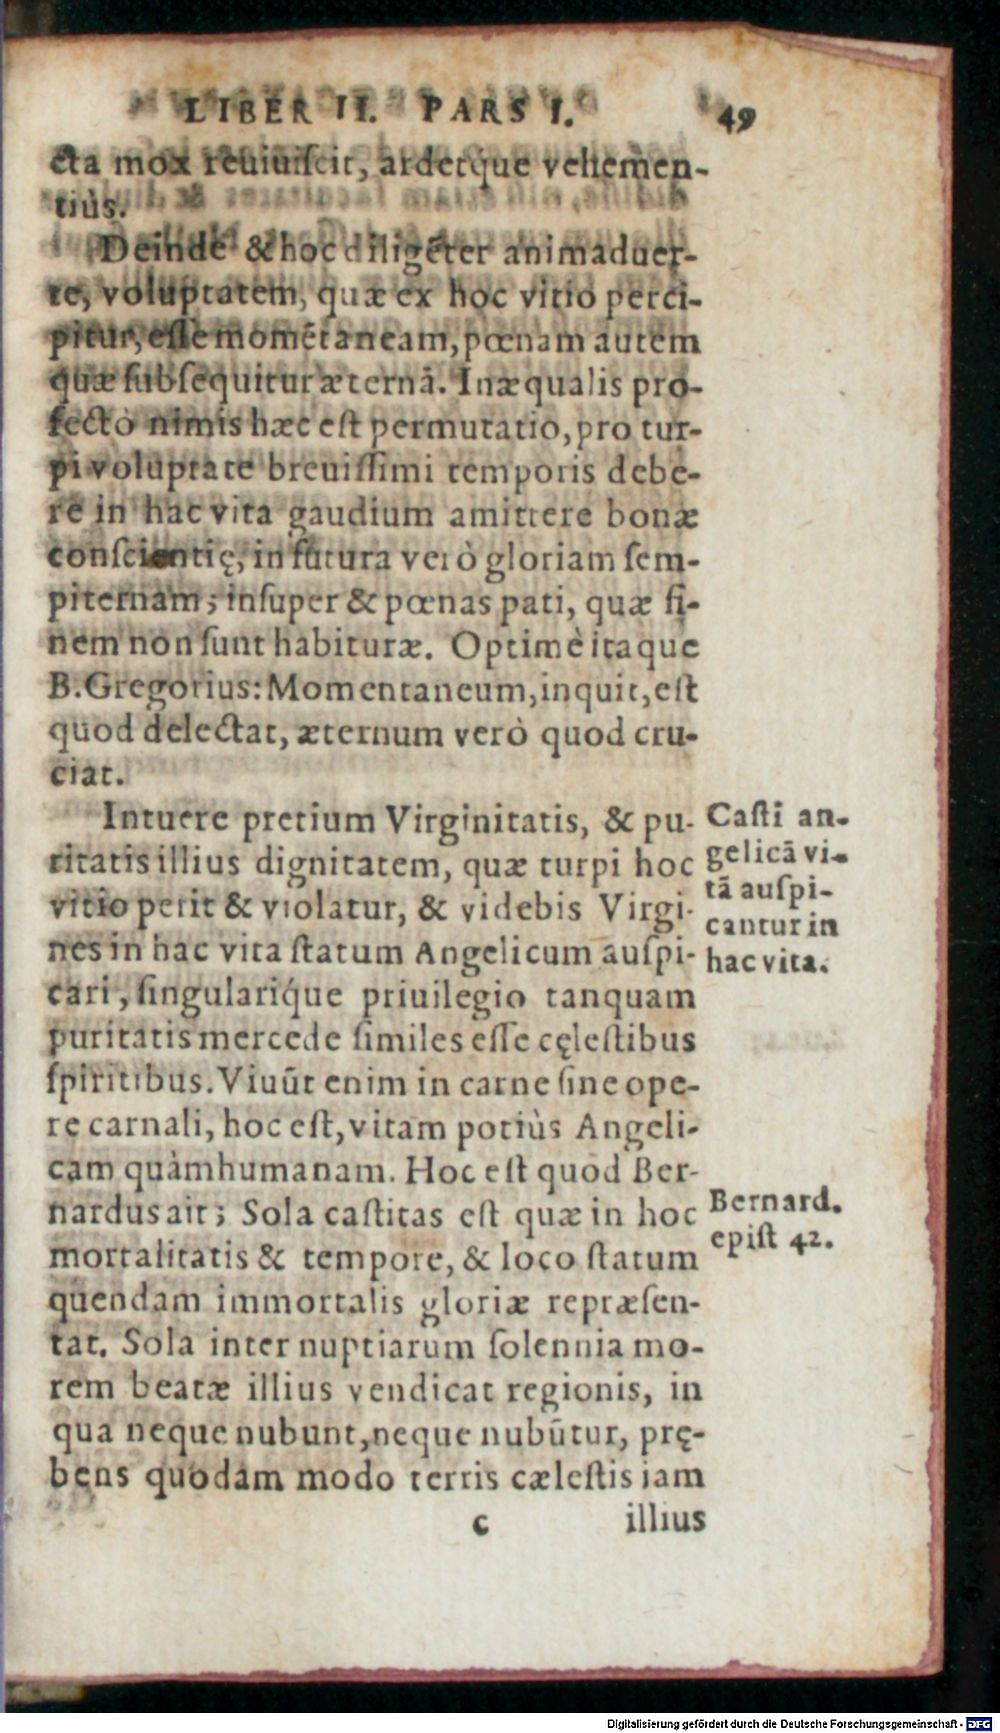 LIBER II. PARS I. 49
cta mox reuiuiſcit, ardetq́ue vehemen-
tiùs.
Deinde & hoc diligẽter animaduer-
te, voluptatem, quæ ex hoc vitio perci-
pitur, eſſe momẽtaneam, pœnam autem
quæ ſubſequitur æternã. Inæqualis pro-
fectò nimis hæc eſt permutatio, pro tur-
pi voluptate breuiſſimi temporis debe-
re in hac vita gaudium amittere bonæ
conſcientię, in futura verò gloriam ſem-
piternam; inſuper & pœnas pati, quæ fi-
nem non ſunt habituræ. Optimè itaque
B. Gregorius: Momentaneum, inquit, eſt
quod delectat, æternum verò quod cru-
ciat.
Intuere pretium Virginitatis, & pu-
ritatis illius dignitatem, quæ turpi hoc
vitio perit & violatur, & videbis Virgi-
nes in hac vita ſtatum Angelicum auſpi-
cari, ſingulariq́ue priuilegio tanquam
puritatis mercede ſimiles eſſe cęleſtibus
ſpiritibus. Viuũt enim in carne ſine ope-
re carnali, hoc eſt, vitam potiùs Angeli-
cam quàm humanam. Hoc eſt quod Ber-
nardus ait; Sola caſtitas eſt quæ in hoc
mortalitatis & tempore, & loco ſtatum
quendam immortalis gloriæ repræſen-
tat. Sola inter nuptiarum ſolennia mo-
rem beatæ illius vendicat regionis, in
qua neque nubunt, neque nubũtur, prę-
bens quodam modo terris cæleſtis iam
c illius
Caſti an-
gelicã vi-
tã auſpi-
cantur in
hac vita.
Bernard.
epiſt 42.
Digitalisierung gefördert durch die Deutsche Forschungsgemeinschaft - DFG